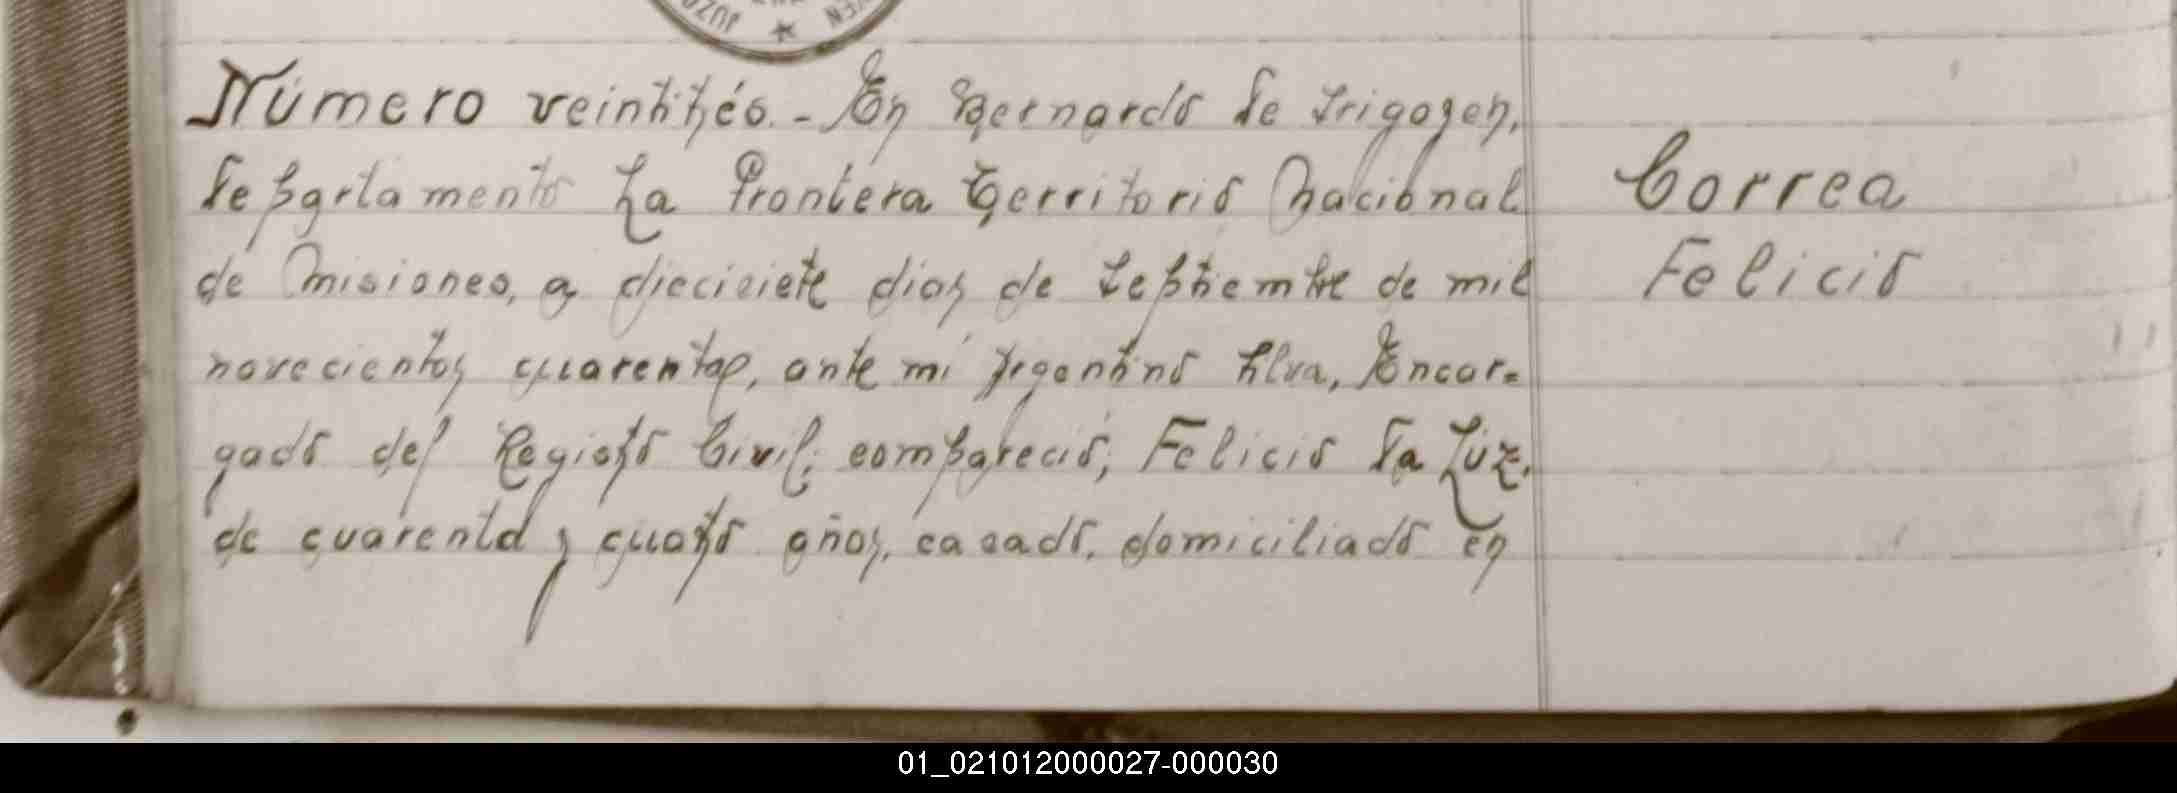 JUZG
VEN
Número veintitrés.- En Bernardo de Irigoyen,
departamento La Frontera Territorio Nacional
de Misiones, a diecisiete dias de septiembre de mil
novecientos cuarenta, ante mi Argentino Alva, Encar-
gado del Registro Civil; compareció; Felicio da Luz,
de cuarenta y cuatro años, casado, domiciliado en
Correa
Felicio
01_021012000027-000030